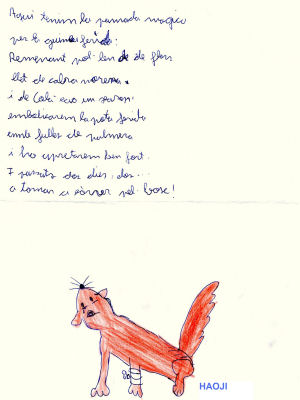 Aquí tenim la pomada màgica
per la guineu ferida.
Remenant pol·len de flors
llet de cabra morena.
i de Calà
embolicarem la pota ferida
amb fulles de palmera
i ho apretarem ben fort.
I passats dos dies, dos...
a tornar a córrer pel bosc!
HAOJI